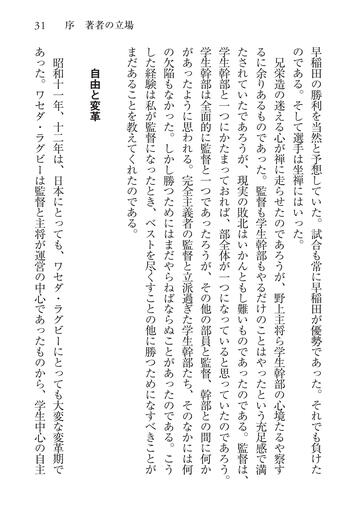 31　序　著者の立場
早稲田の勝利を当然と予想していた。試合も常に早稲田が優勢であった。それでも負けた
のである。そして選手は坐禅にはいった。
　兄栄造の迷える心が禅に走らせたのであろうが、野上主将ら学生幹部の心境たるや察す
るに余りあるものであった。監督も学生幹部もやるだけのことはやったという充足感で満
たされていたであろうが、現実の敗北はいかんともし難いものであったのである。監督は、
学生幹部と一つにかたまっておれば、部全体が一つになっていると思っていたのであろう。
学生幹部は全面的に監督と一つであったろうが、その他の部員と監督、幹部との間に何か
があったように思われる。完全主義者の監督と立派過ぎた学生幹部たち、そのなかには何
の欠陥もなかった。しかし勝つためにはまだやらねばならぬことがあったのである。こう
した経験は私が監督になったとき、ベストを尽くすことの他に勝つためになすべきことが
まだあることを教えてくれたのである。
自由と変革
　昭和十一年、十二年は、日本にとっても、ワセダ・ラグビーにとっても大変な変革期で
あった。ワセダ・ラグビーは監督と主将が運営の中心であったものから、学生中心の自主